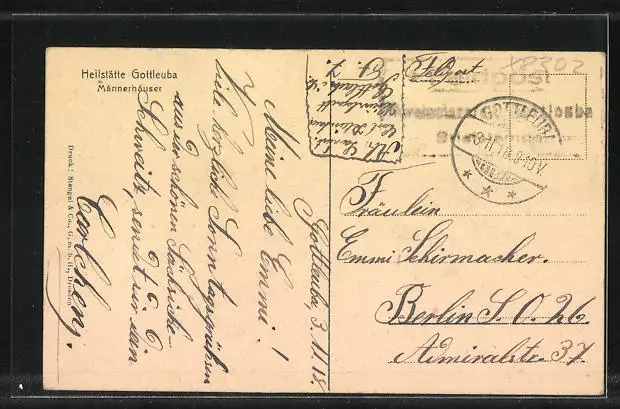 Heilstätte Gottleuba
Männerhäuser
Druck: Stengel & Co., G.m.b.H., Dresden
Gottleuba, 3.11.18.
Meine liebe Emmi!
Viele herzliche Sonntagsgrüße
aus der schönen Sächsischen
Schweitz, sendet dir dein
Carlchen.
Feldpost
GOTTLEUBA
Fräulein
Emmi Schirmacher.
Berlin S.O. 26
Admiralstr. 37